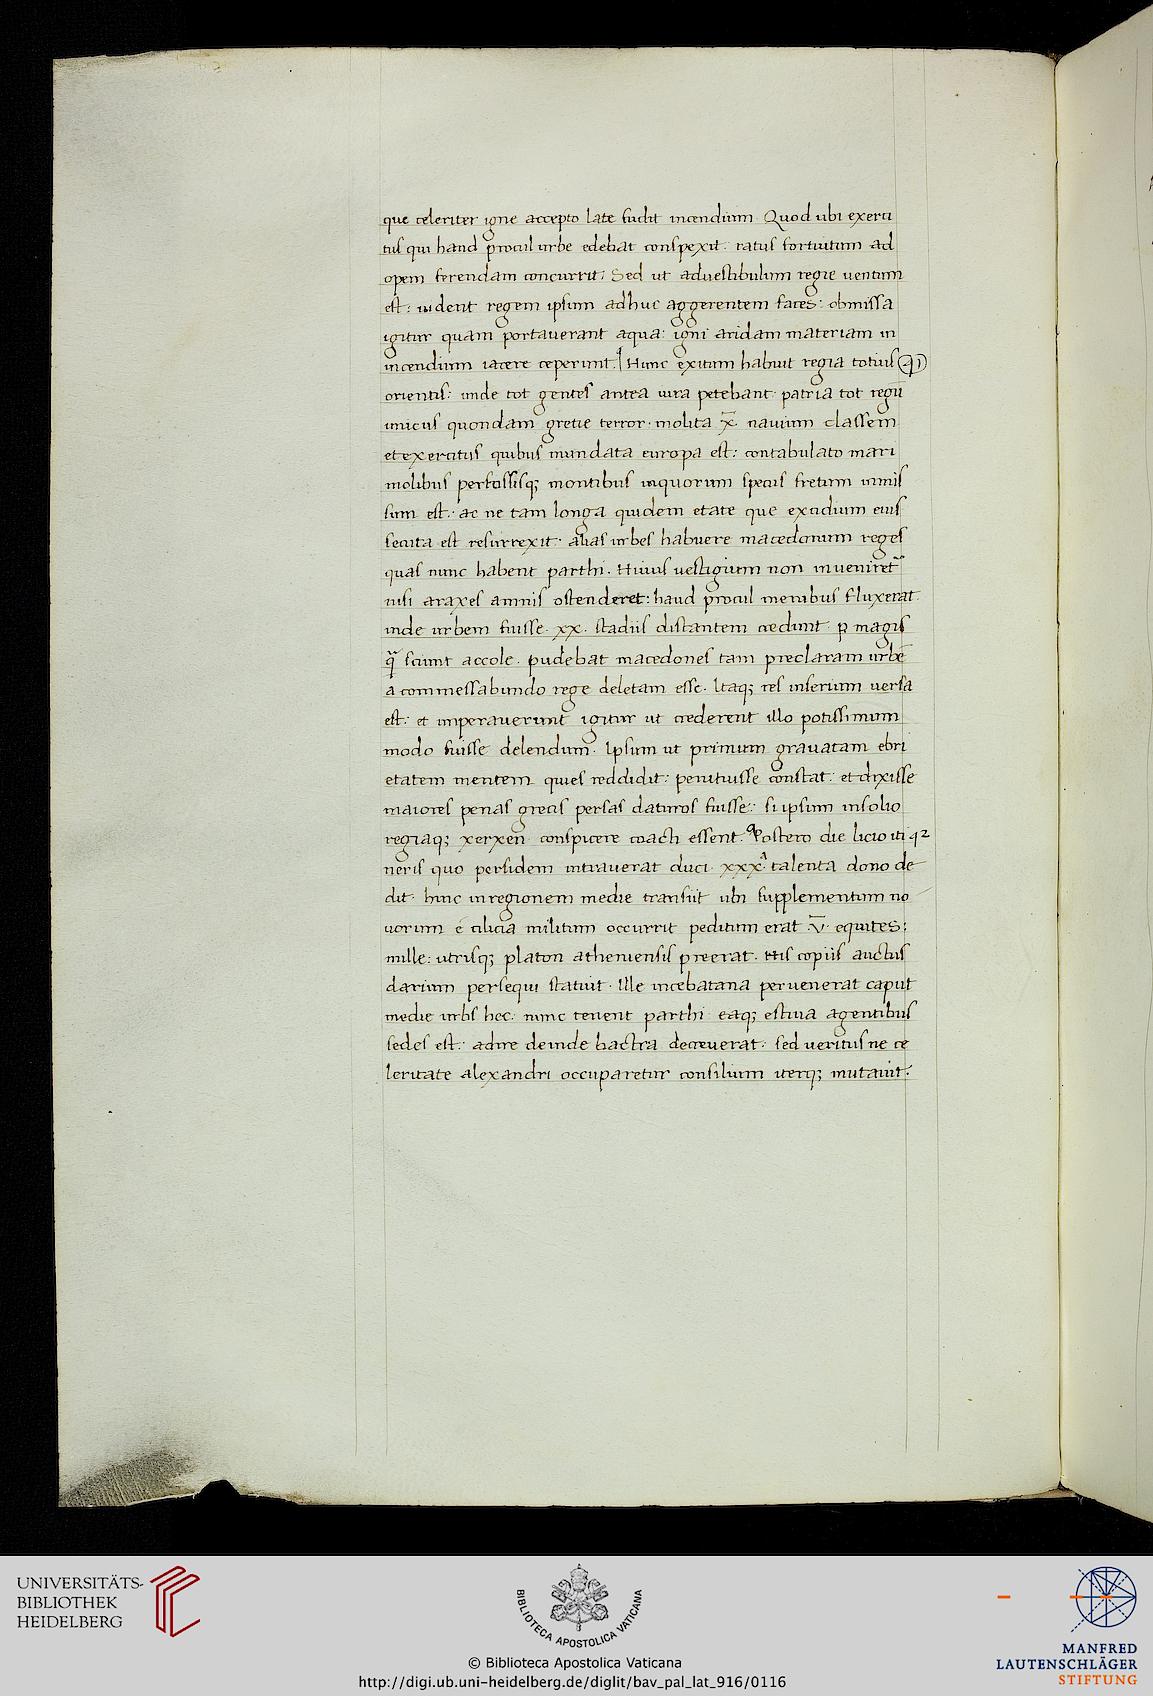 que celeriter igne accepto late fudit incendium. Quod ubi exerci
tus qui haud procul urbe edebat conspexit: ratus fortuitum ad
opem ferendam concurrit: Sed ut aduestibulum regie uentum
est: uident regem ipsum adhuc aggerentem faces: obmissa
igitur quam portauerant aqua: igni aridam materiam in
incendium iacere ceperunt. Hunc exitum habuit regia totius
orientis: unde tot gentes antea iura petebant. patria tot regū
unicus quondam gretie terror. molita x̄. nauium classem
et exercitus quibus inundata europa est: contabulato mari
molibus perfossisq; montibus inquorum specus fretum inmis
sum est: ac ne tam longa quidem etate que excidium eius
secuta est resurrexit: alias urbes habuere macedonum reges
quas nunc habent parthi. Huius uestigium non inueniret̄
nisi araxes amnis ostenderet: haud procul menibus fluxerat
inde urbem fuisse. xx. stadiis distantem credunt. p magis
q̄ sciunt accole. pudebat macedones tam preclaram urbē
a commessabundo rege deletam esse. Itaq; res inserium uersa
est: et imperauerunt igitur ut crederent illo potissimum
modo fuisse delendum. Ipsum ut primum grauatam ebri
etatem mentem quies reddidit: penituisse constat: et dixisse
maiores penas grecis persas daturos fuisse: si ipsum insolio
regiaq; xerxen conspicere coacti essent. Postero die licio iti
neris quo persidem intrauerat duci. xxx. talenta dono de
dit. hinc inregionem medie transiit ubi supplementum no
uorum ē cilicia militum occurrit peditum erat v̄. equites:
mille: utrisq; platon atheniensis preerat. His copiis auctus
darium persequi statuit. Ille incebatana peruenerat caput
medie urbs hec: nunc tenent parthi eaq; estiua agentibus
sedes est: adire deinde bactra decreuerat: sed ueritus ne ce
leritate alexandri occuparetur consilium iterq; mutauit.
UNIVERSITÄTS-
BIBLIOTHEK
HEIDELBERG
BIBLIOTECA APOSTOLICA VATICANA
MANFRED
LAUTENSCHLÄGER
STIFTUNG
© Biblioteca Apostolica Vaticana
http://digi.ub.uni-heidelberg.de/diglit/bav_pal_lat_916/0116